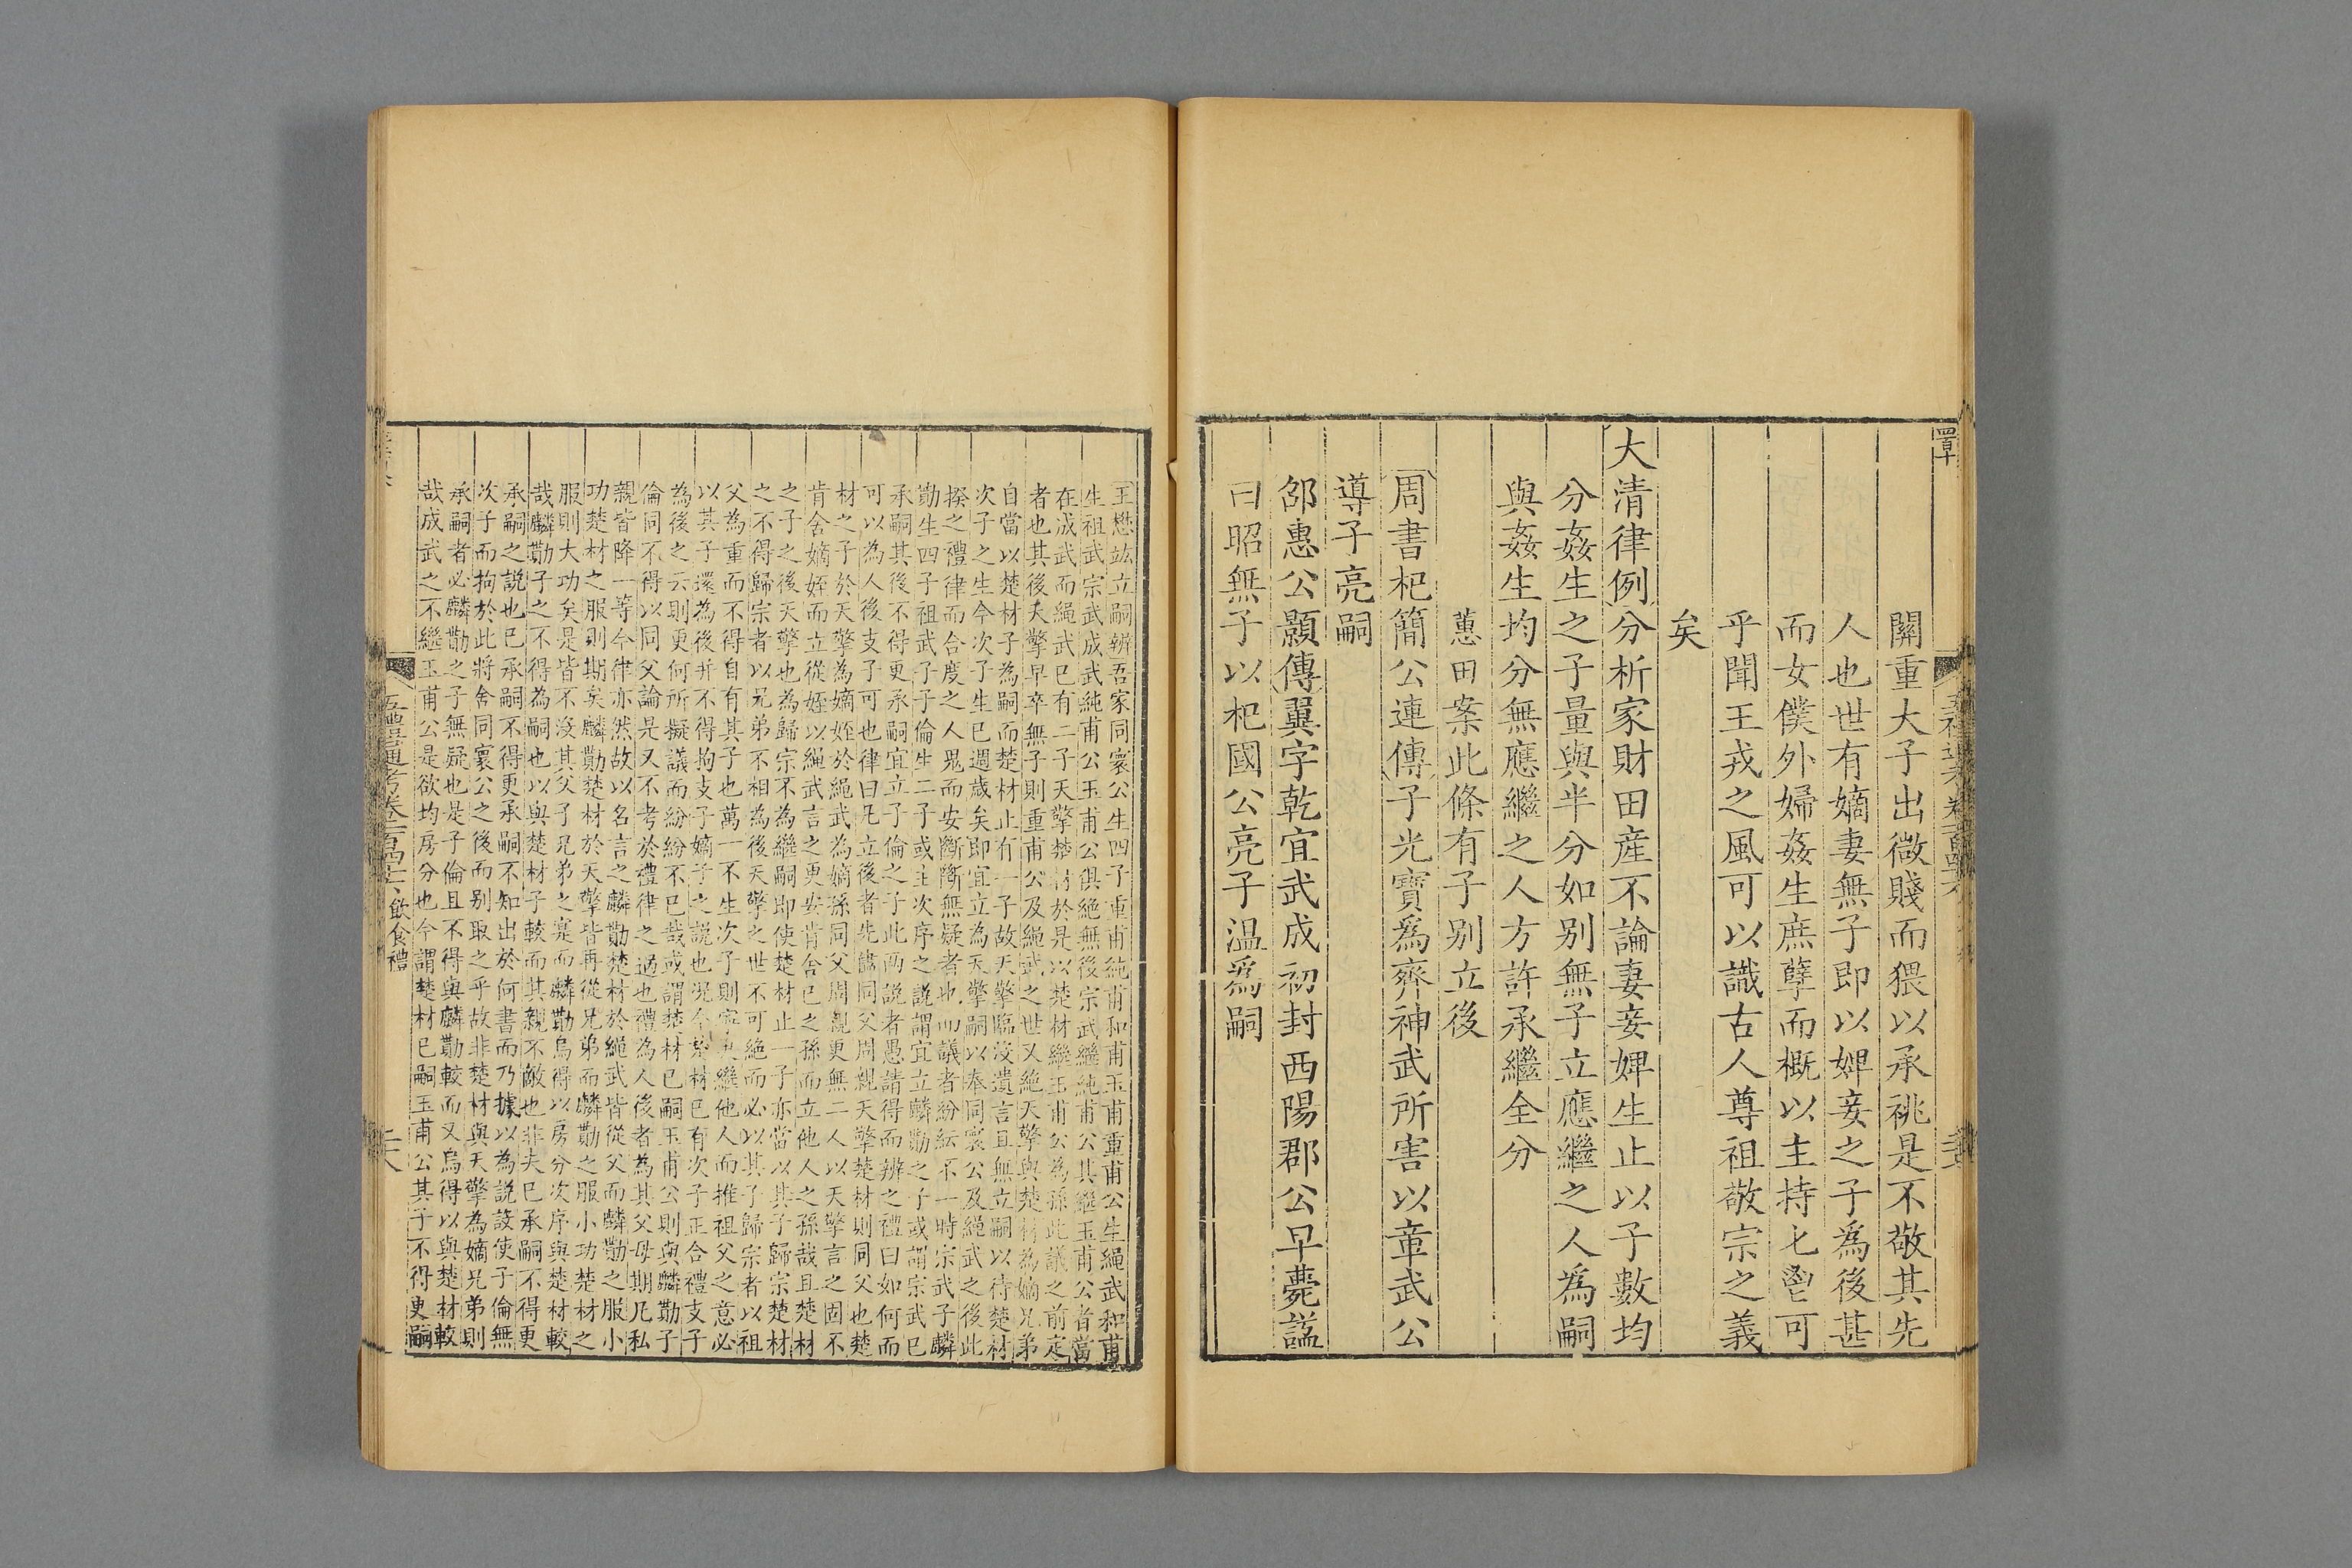 關重大子出微賤而猥以承祧是不敬其先
人也世有嫡妻無子即以婢妾之子爲後甚
而女僕外婦姦生庶孽而概以主持匕鬯可
乎聞王戎之風可以識古人尊祖敬宗之義
矣
大清律例分析家財田産不論妻妾婢生止以子數均
分姦生之子量與半分如别無子立應繼之人爲嗣
與姦生均分無應繼之人方許承繼全分
蕙田案此條有子别立後
周書杞簡公連傳子光寶爲齊神武所害以章武公
導子亮嗣
邵惠公顥傳翼字乾宜武成初封西陽郡公早薨謚
曰昭無子以杞國公亮子温爲嗣
王懋竑立嗣辨吾家同寰公生四子重甫純甫和甫玉甫重甫公生繩武和甫
生祖武宗武成武純甫公玉甫公俱絶無後宗武繼純甫公其繼玉甫公者當
在成武而繩武已有二子天擎楚材於是以楚材繼玉甫公為孫此議之前定
者也其後天擎早卒無子則重甫公及繩武之世又絶天擎與楚材為嫡兄弟
自當以楚材子為嗣而楚材止有一子故天擎臨没遺言且無立嗣以待楚材
次子之生今次子生已週歲矣即宜立為天擎嗣以奉同寰公及繩武之後此
揆之禮律而合度之人鬼而安斷斷無疑者也而議者紛紜不一時宗武子麟
勳生四子祖武子子倫生二子或主次序之說謂宜立麟勳之子或謂宗武已
承嗣其後不得更承嗣宜立子倫之子此两說者愚請得而辨之禮曰如何而
可以為人後支子可也律曰凡立後者先儘同父周親天擎楚材則同父也楚
材之子於天擎為嫡姪於繩武為嫡孫同父周親更無二人以天擎言之固不
肯舍嫡姪而立從姪以繩武言之更安肯舍已之孫而立他人之孫哉且楚材
之子之後天擎也為歸宗不為繼嗣即使楚材止一子亦當以其子歸宗楚材
之不得歸宗者以兄弟不相為後天擎之世不可絶而必以其子歸宗者以祖
父為重而不得自有其子也萬一不生次子則寧更繼他人而推祖父之意必
以其子還為後并不得拘支子嫡子之說也况今楚材已有次子正合禮支子
為後之云則更何所擬議而紛紛不已哉或謂楚材已嗣玉甫公則與麟勳子
倫同不得以同父論是又不考於禮律之過也禮為人後者為其父母期凡私
親皆降一等今律亦然故以名言之麟勳楚材於繩武皆從父而麟勳之服小
功楚材之服則期矣麟勳楚材於天擎皆再從兄弟而麟勳之服小功楚材之
服則大功矣是皆不没其父子兄弟之寔而麟勳烏得以房分次序與楚材較
哉麟勳子之不得為嗣也以與楚材子較而其親不敵也非夫已承嗣不得更
承嗣之說也已承嗣不得更承嗣不知出於何書而乃據以為說設使子倫無
次子而拘於此將舍同寰公之後而别取之乎故非楚材與天擎為嫡兄弟則
承嗣者必麟勳之子無疑也是子倫且不得與麟勳較而又烏得以與楚材較
哉成武之不繼玉甫公是欲均房分也今謂楚材已嗣玉甫公其子不得更嗣
飲食禮